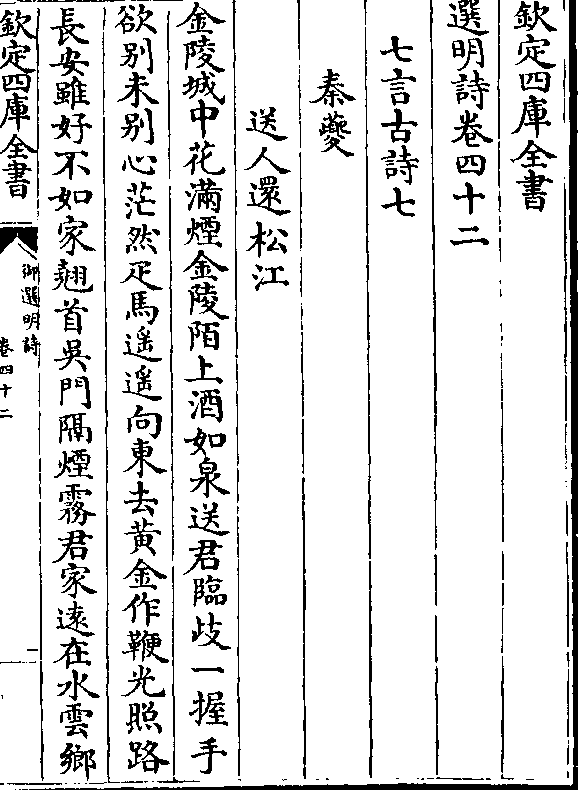 欽定四庫全書
選明詩卷四十二
七言古詩七
秦夔
送人還松江
金陵城中花滿煙金陵陌上酒如泉送君臨歧一握手
欲别未别心茫然疋馬遥遥向東去黄金作鞭光照路
長安雖好不如家翹首吳門隔煙霧君家遠在水雲鄉
欽定四庫全書
御選明詩
卷四十二
一